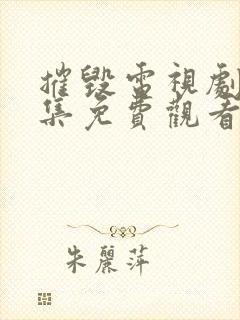 摧毀電視劇
集免費觀看
朱麗萍